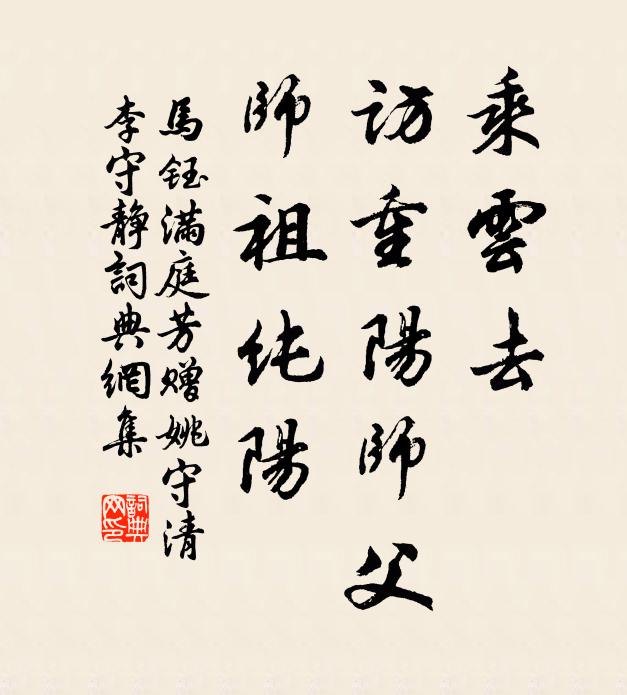 乘雲去
訪重陽師父
師祖純陽
馬鈺满庭芳赠姚守清
李守靜詞典網集
詞典网印